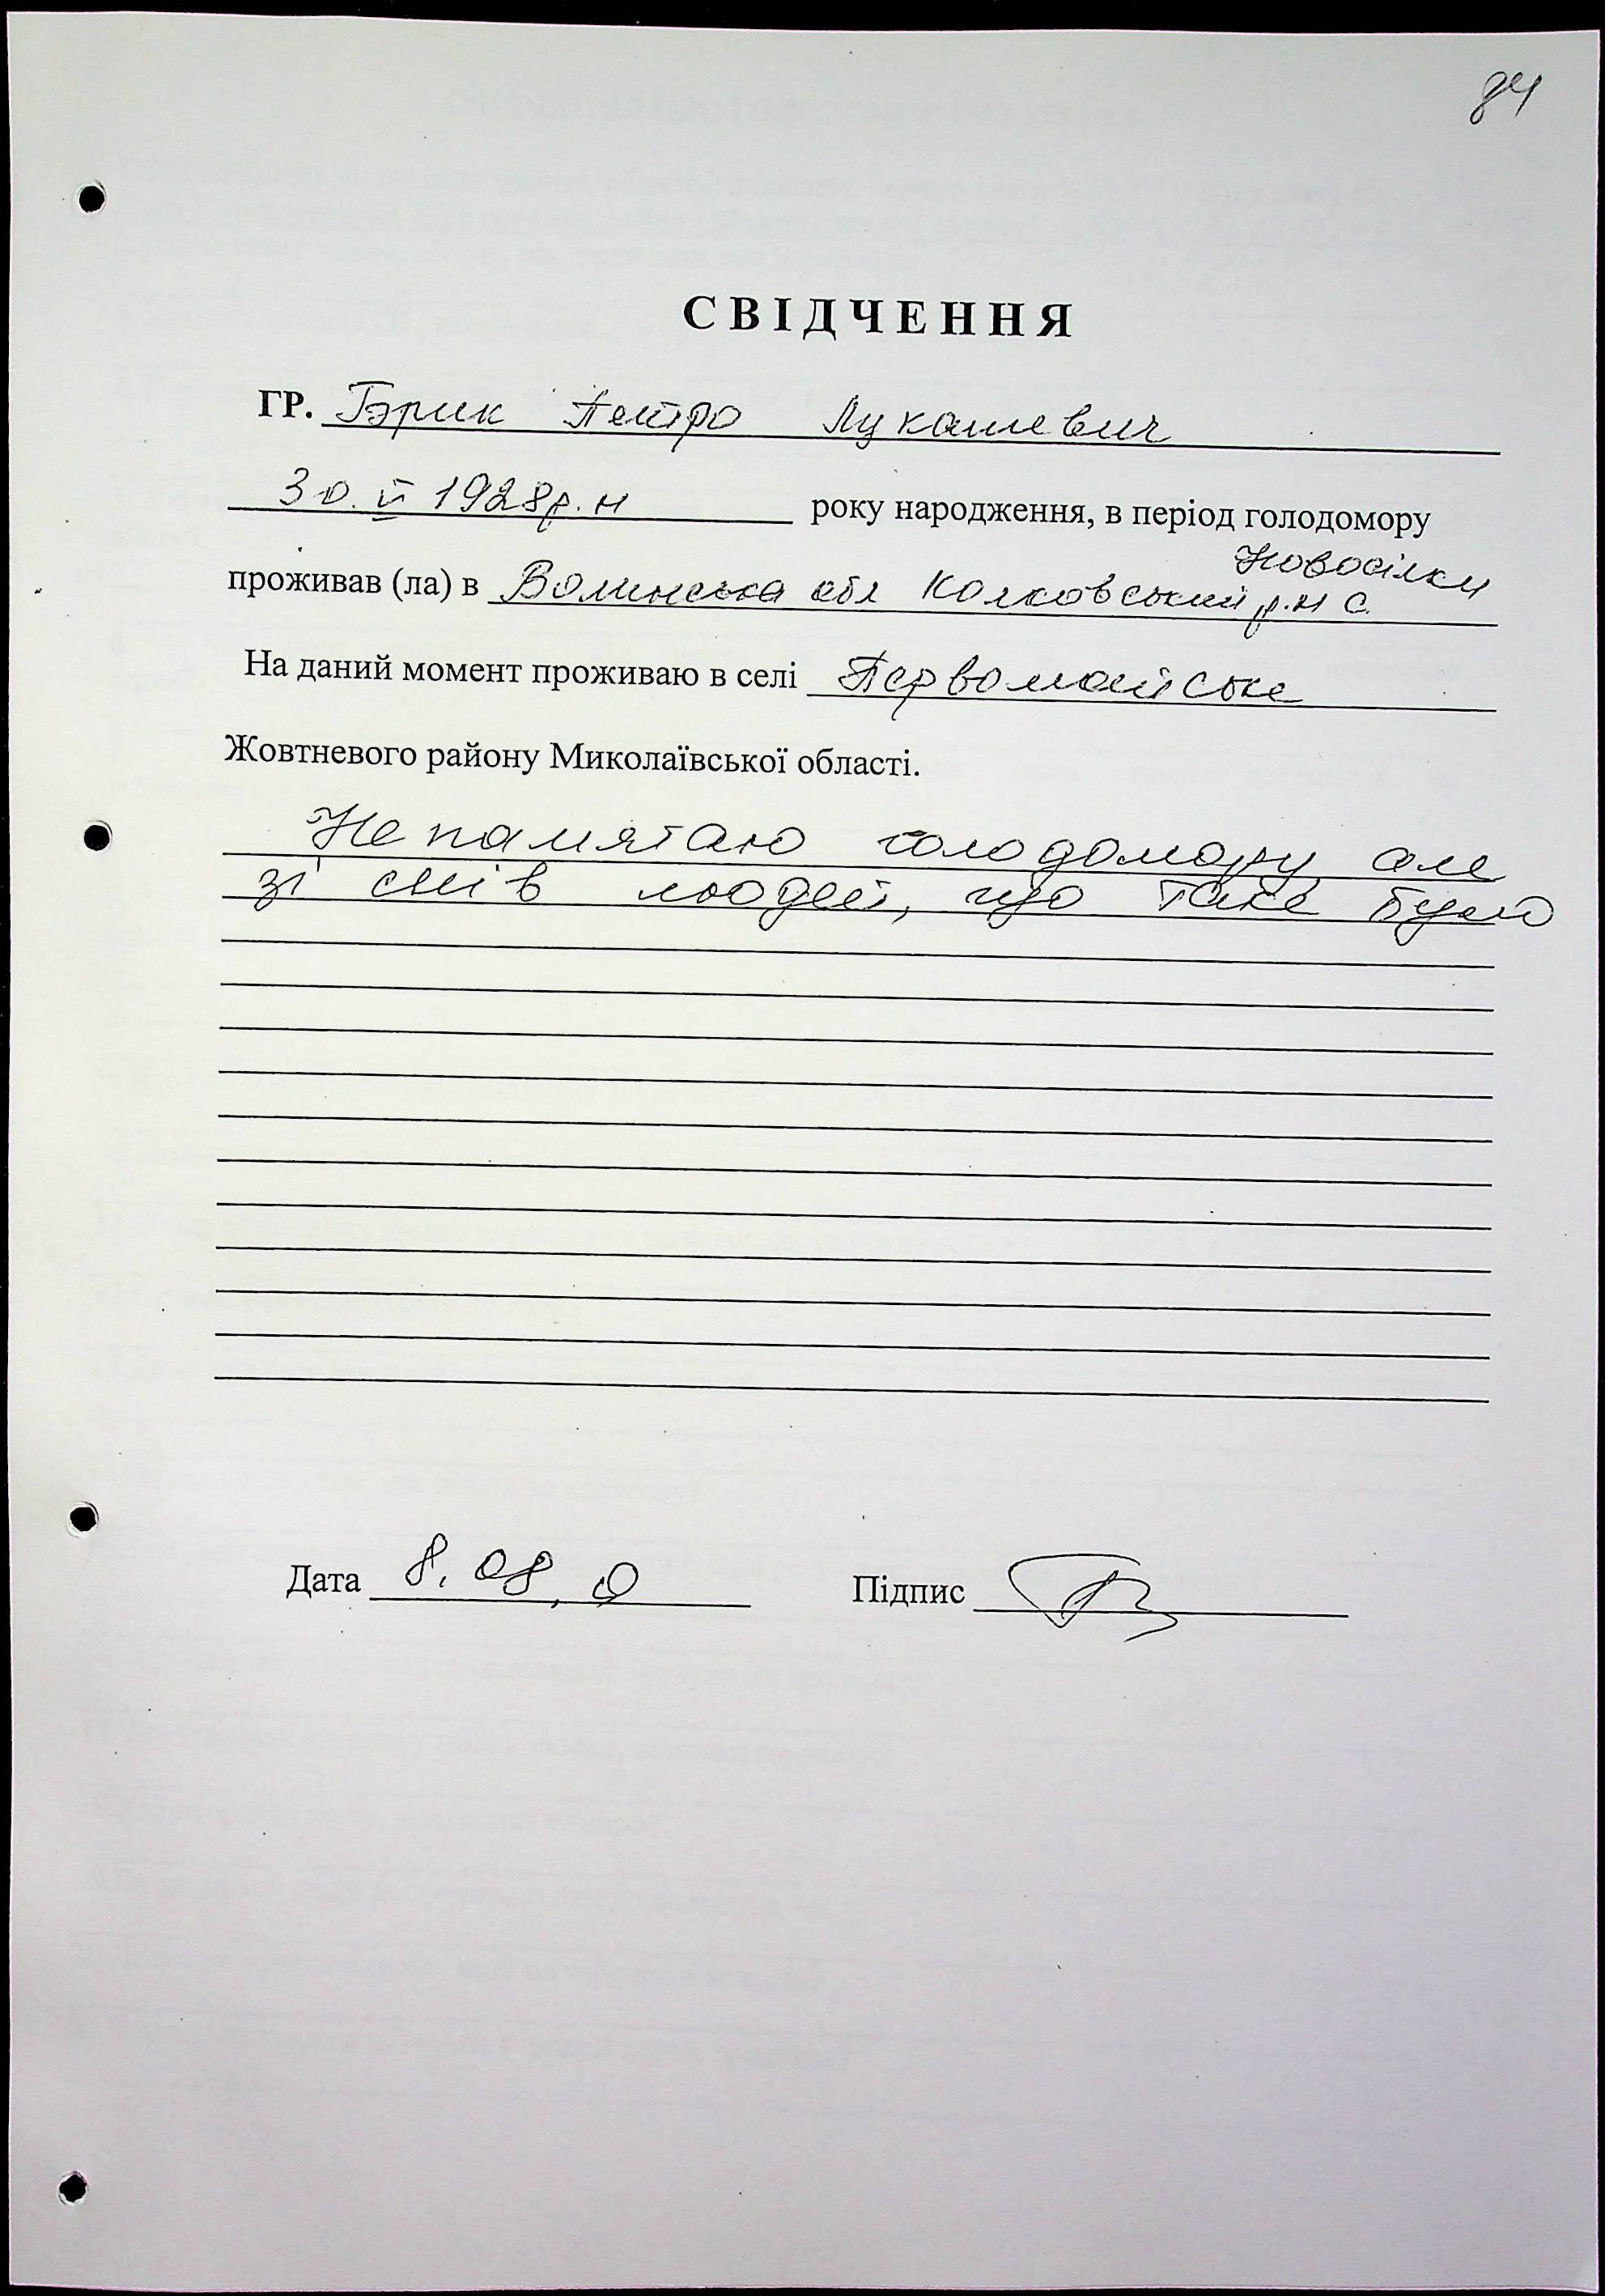 84
СВІДЧЕННЯ
ГР. Гэрик Петро Лукашевич
30. VI 1928р.н року народження, в період голодомору
Новосілки
проживав (ла) в Волинська обл Колковський р.н с.
На даний момент проживаю в селі Первомайське
Жовтневого району Миколаївської області.
Не памятаю голодомору але
зі слів людей, що таке було
Дата 8. 08,
Підпис